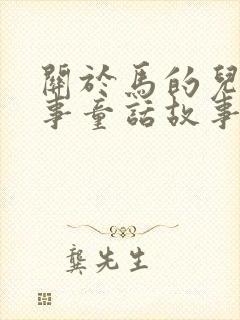 關於馬的兒
事童話故事
龔先生